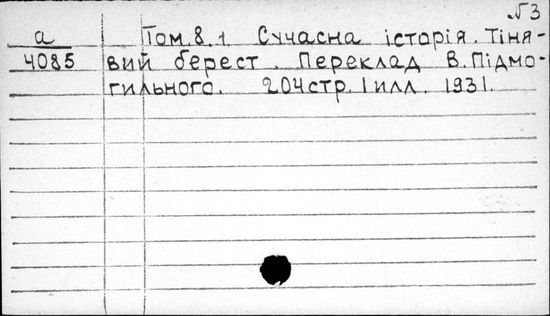 №3
а Том.8.1 Сучасна історія. Тіня-
4085 вий берест. Переклад В. Підмо-
гильного. 204стр. 1 илл. 1931.